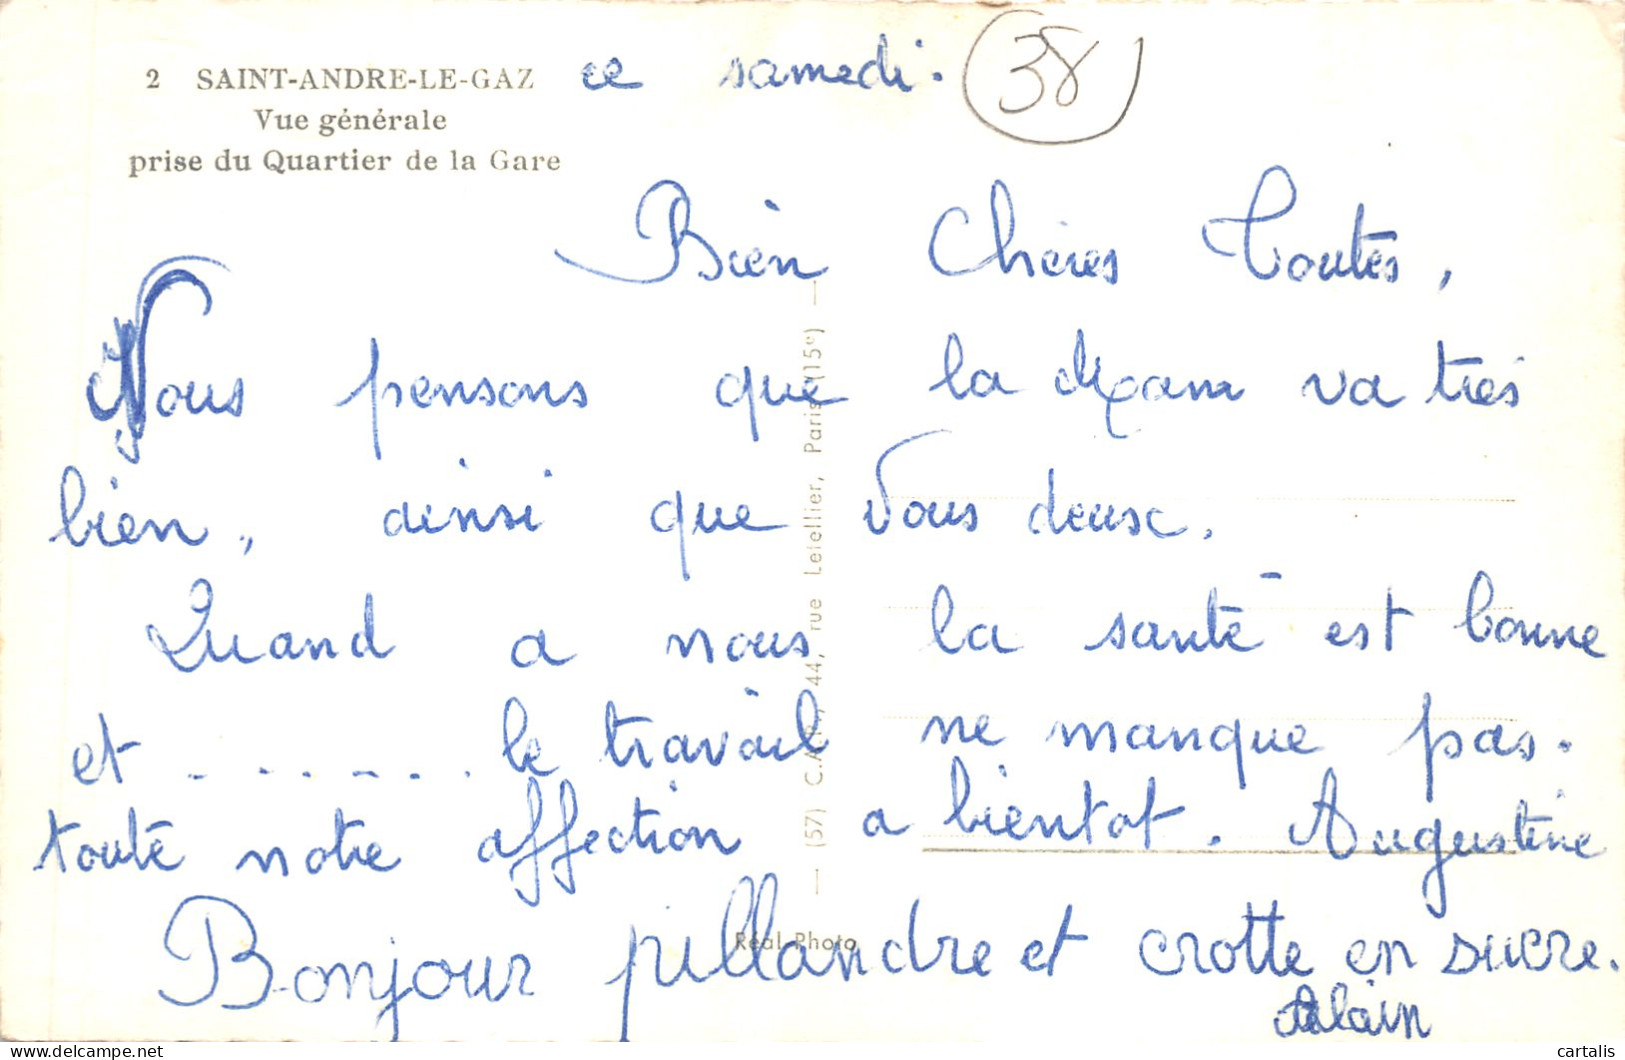 2 SAINT-ANDRE-LE-GAZ
Vue générale
prise du Quartier de la Gare
ce samedi.
38
Bien Chères Toutes,
Nous pensons que la Mam va très
bien, ainsi que vous deux.
Quand a nous la santé est bonne
et ....... le travail ne manque pas.
toute notre affection a bientot. Augustine
Bonjour pillandre et crotte en sucre.
Alain
(57) C.A.P., 44, rue Letellier, Paris (15e)
Réal-Photo
cartalis